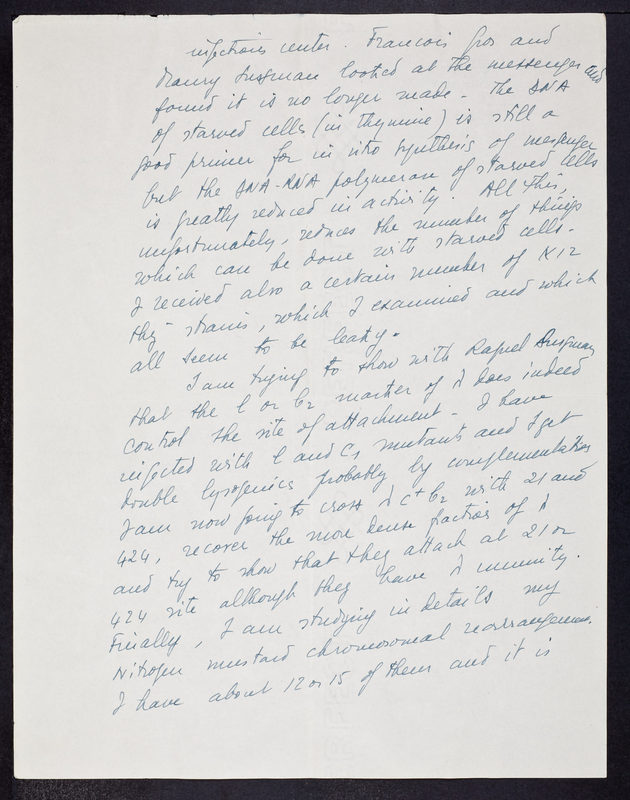 infectious center. Francois Gros and
Maury Sussman looked at the messenger and
found it is no longer made - The DNA
of starved cells (in thymine) is still a
good primer for in vitro synthesis of messenger
but the DNA-RNA polymerase of starved cells
is greatly reduced in activity. All this,
unfortunately, reduces the number of things
which can be done with starved cells.
I received also a certain number of K12
thy- strains, which I examined and which
all seem to be leaky.
I am trying to show with Raquel Sussman
that the l or b2 marker of λ does indeed
control the site of attachment - I have
infected with l and C1 mutants and I get
double lysogenics probably by complementation
I am now going to cross λ c+ b2 with 21 and
424, recover the more dense fraction of λ
and try to show that they attach at 21 or
424 site although they have λ immunity.
Finally, I am studying in details my
Nitrogen mustard chromosomal rearrangements.
I have about 12 or 15 of them and it is